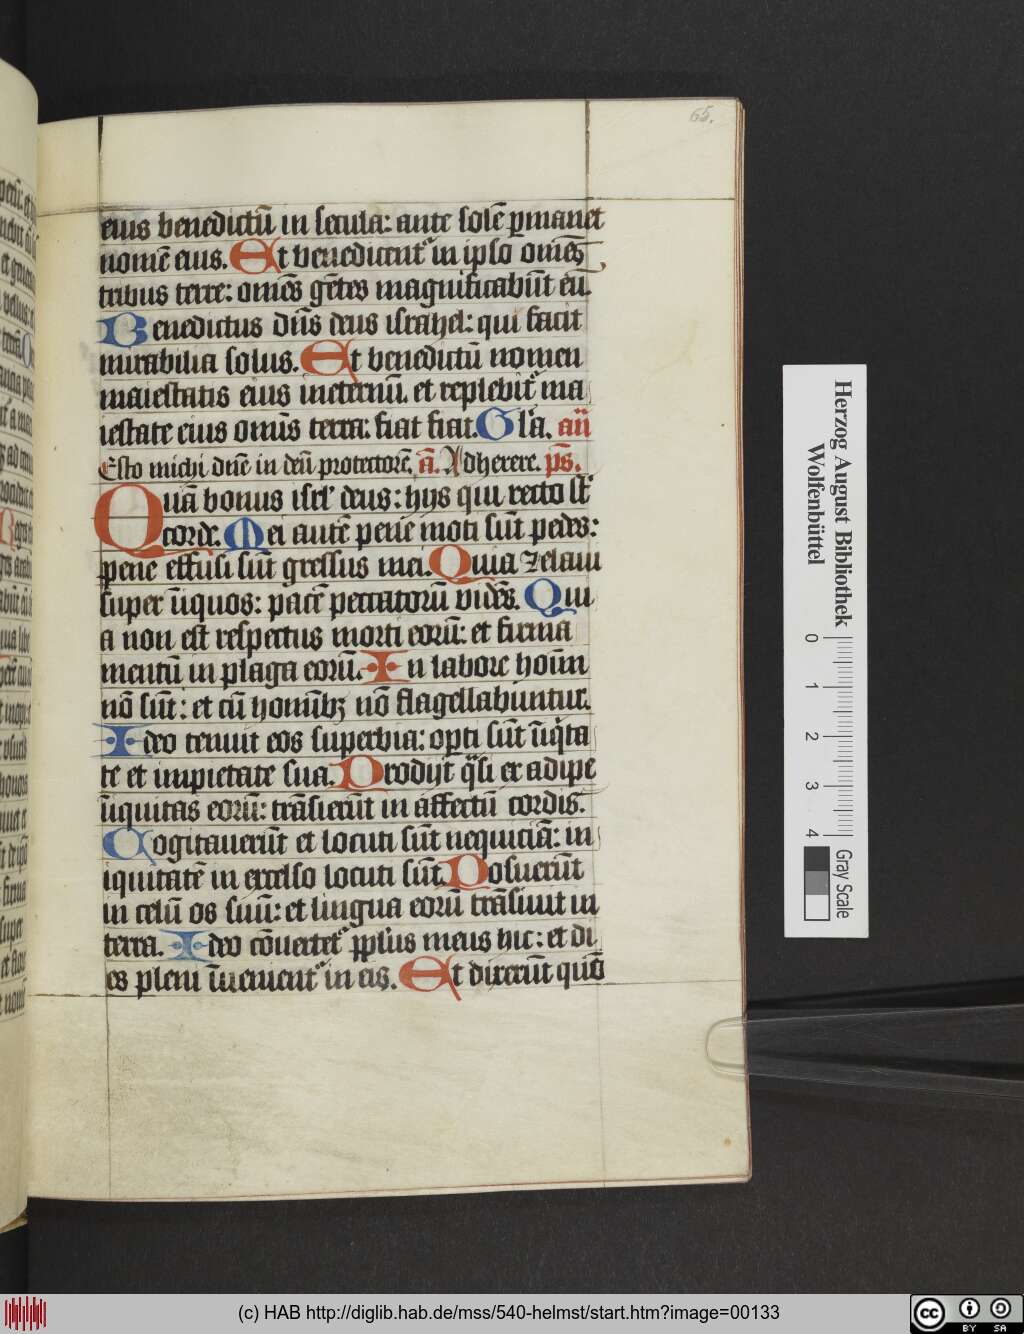 65.
eius benedictū in secula: ante solē ꝑmanet
nomē eius. Et benedicent᷑ in ipso omēs
tribus terre: omēs gētes magnificabūt eū.
Benedictus dūs deus israhel: qui facit
mirabilia solus. Et benedictū nomen
maiestatis eius ineternū. et replebit᷑ ma
iestate eius omīs terra: fiat fiat. Gl'a. añ
Esto michi dne in deū protectorē. ā. Adherere. ps̄.
Quā bonus isrl' deus: hys qui recto st̄
corde. Mei autē pene moti sūt pedes:
pene effusi sūt gressus mei. Quia zelaui
super īiquos: pacē peccatorū vidēs. Qui
a non est respectus morti eorū: et firma
mentū in plaga eorū. In labore hoīm
nō sūt: et cū homībꝫ nō flagellabuntur.
Ideo tenuit eos superbia: opti sūt īiqita
te et impietate sua. Prodijt q̄si ex adipe
īiquitas eorū: trāsierūt in affectū cordis.
Cogitauerūt et locuti sūt nequiciā: in
iquitatē in excelso locuti sūt. Posuerūt
in celū os suū: et lingua eorū trāsiuit in
terra. Ideo cōuertet᷑ pplus meus hic: et di
es pleni īuenient᷑ in eis. Et dixerūt quō
Herzog August Bibliothek
Wolfenbüttel
0 1 2 3 4
Gray Scale
(c) HAB http://diglib.hab.de/mss/540-helmst/start.htm?image=00133
cc BY SA